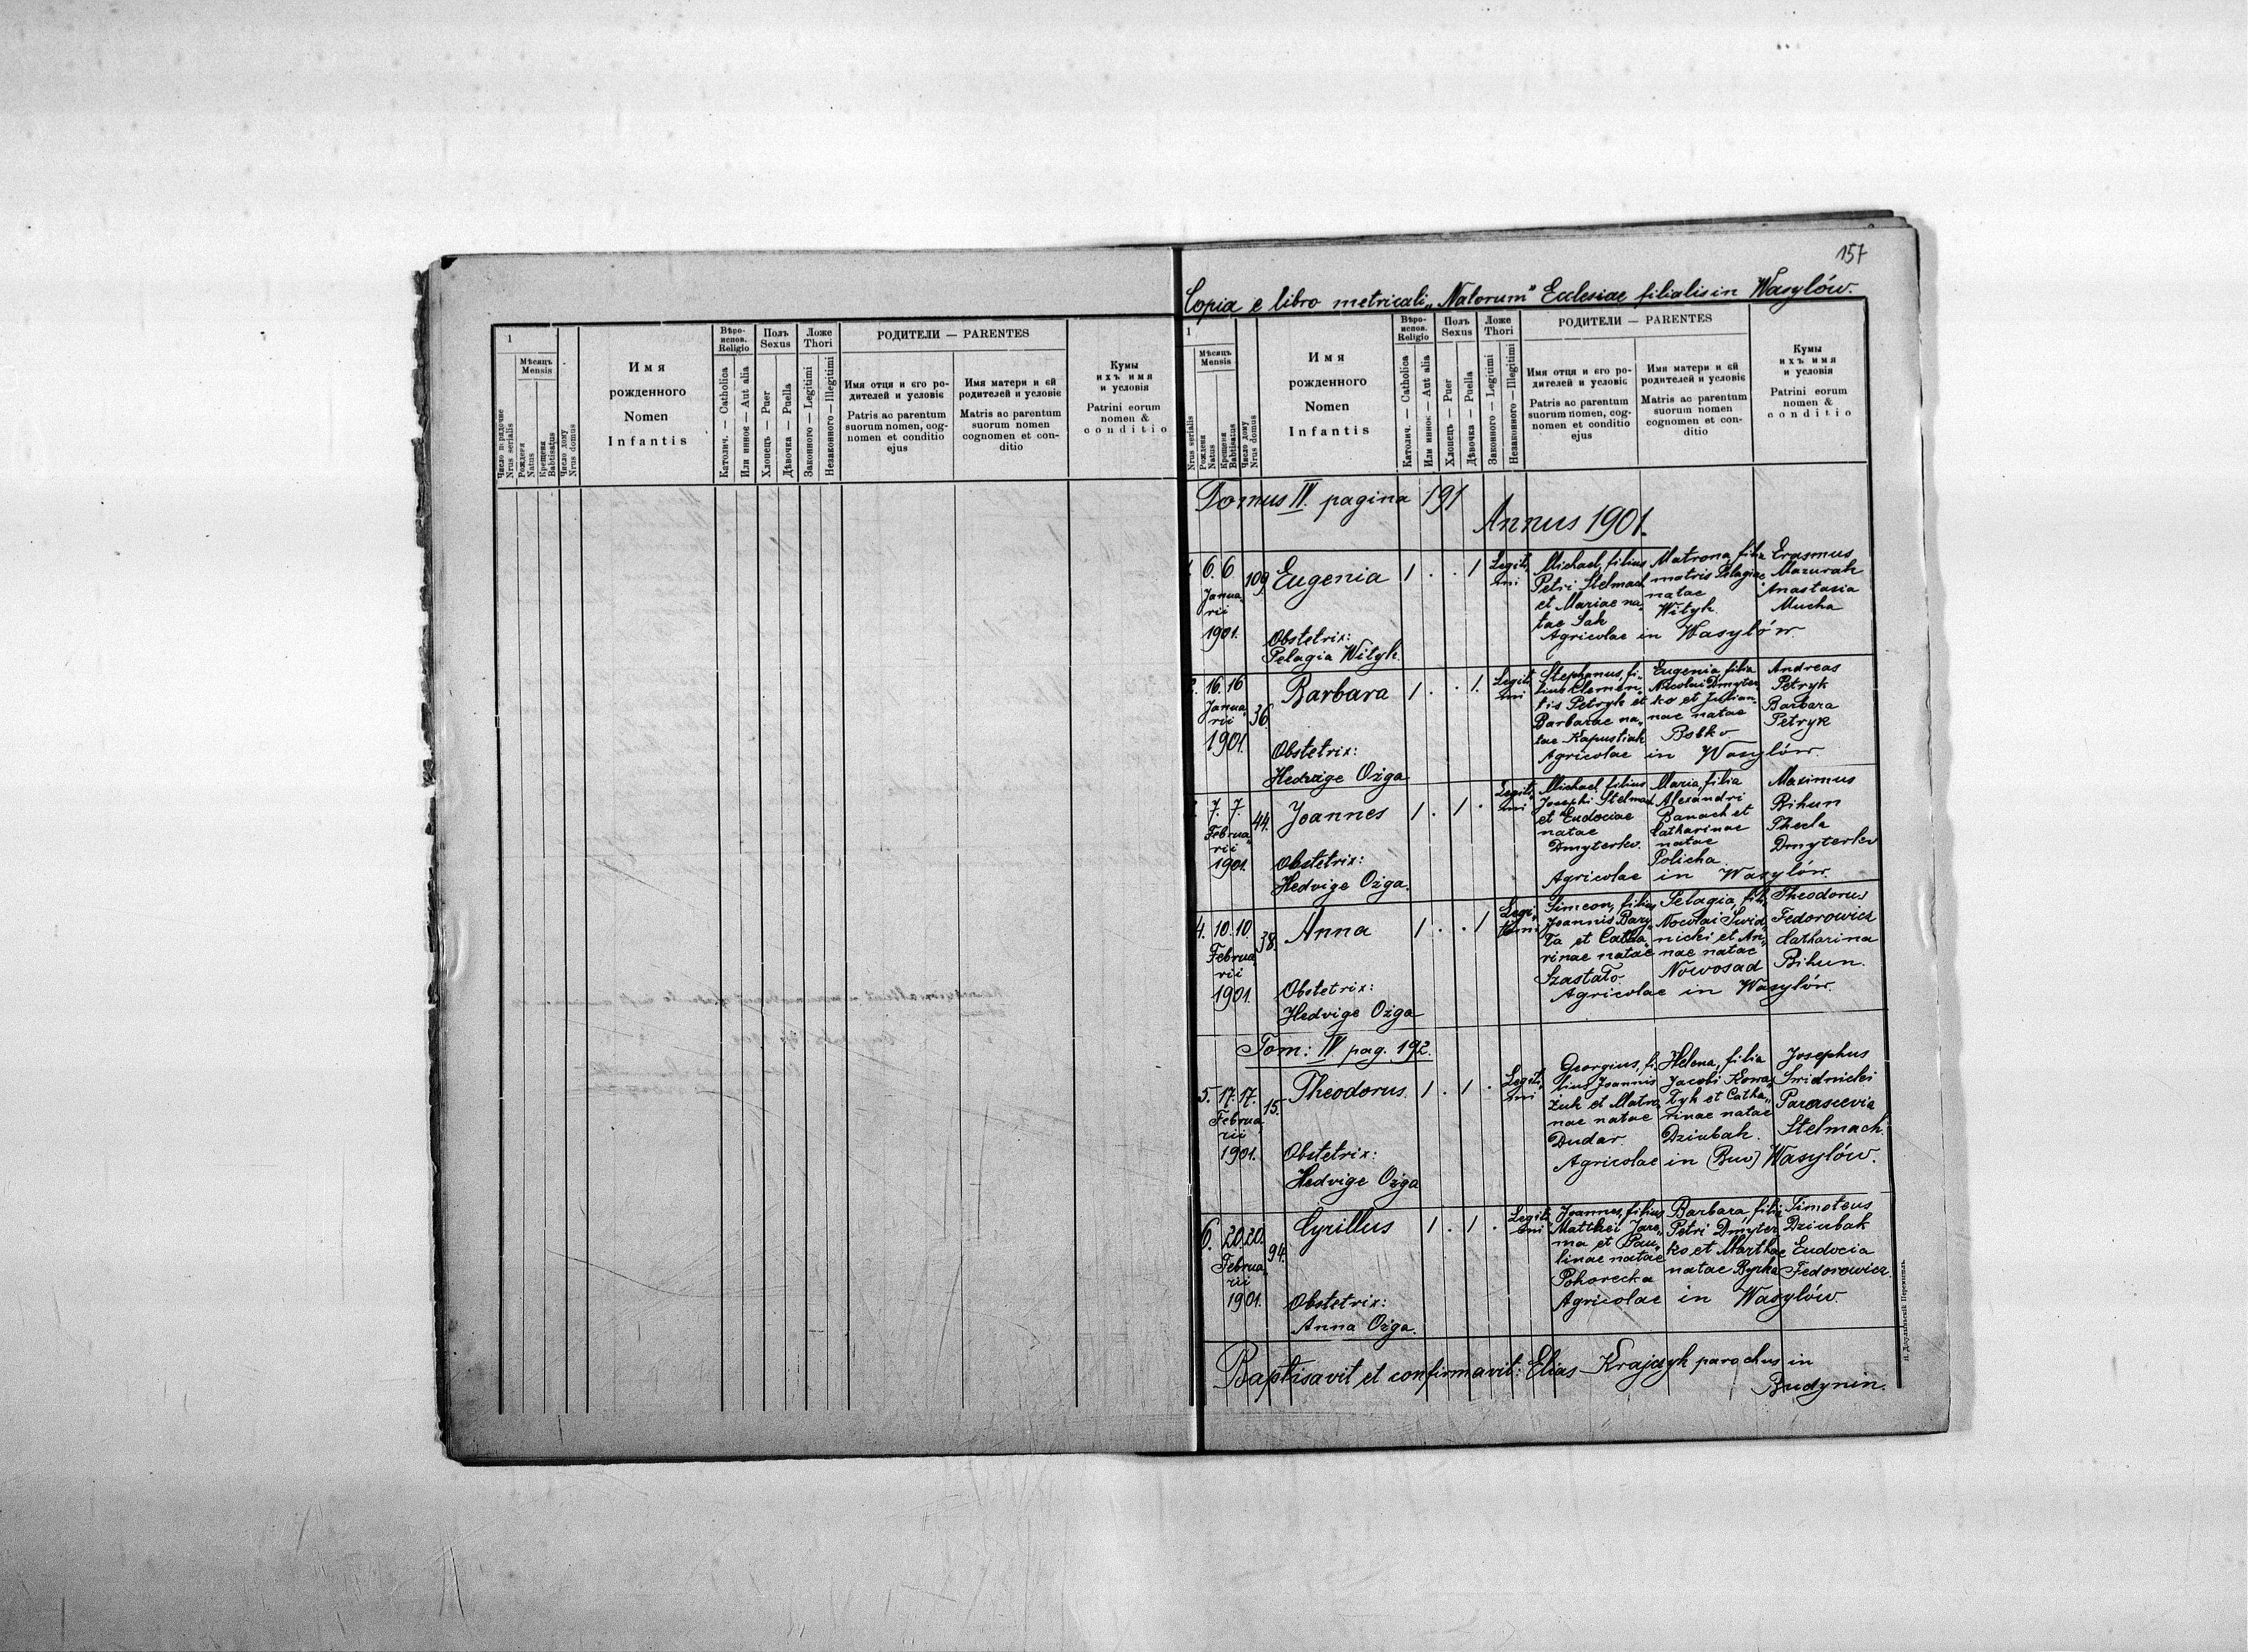 157
Copia e libro metricali „Natorum" Ecclesiae filialis in Wasylów.
1
Число порядочне
Nrus serialis
Мѣсяць
Mensis
Рожденя
Natus
Крещеня
Babtisatus
Число дому
Nrus domus
Имя
рожденного
Nomen
Infantis
Вѣро-
испов.
Religio
Католич. — Catholica
Или инноє — Aut alia
Полъ
Sexus
Хлопець — Puer
Дѣвочка — Puella
Ложе
Thori
Законного — Legitimi
Незаконного — Illegitimi
РОДИТЕЛИ — PARENTES
Имя отця и єго ро-
дителей и условіє
Patris ac parentum
suorum nomen, cog-
nomen et conditio
ejus
Имя матери и єй
родителей и условіє
Matris ac parentum
suorum nomen
cognomen et con-
ditio
Кумы
ихъ имя
и условія
Patrini eorum
nomen &
conditio
1
Nrus serialis
Мѣсяць
Mensis
Рожденя
Natus
Крещеня
Babtisatus
Число дому
Nrus domus
Имя
рожденного
Nomen
Infantis
Вѣро-
испов.
Religio
Католич. — Catholica
Или инноє — Aut alia
Полъ
Sexus
Хлопець — Puer
Дѣвочка — Puella
Ложе
Thori
Законного — Legitimi
Незаконного — Illegitimi
РОДИТЕЛИ — PARENTES
Имя отця и єго ро-
дителей и условіє
Patris ac parentum
suorum nomen, cog-
nomen et conditio
ejus
Имя матери и єй
родителей и условіє
Matris ac parentum
suorum nomen
cognomen et con-
ditio
Кумы
ихъ имя
и условія
Patrini eorum
nomen &
conditio
Tomus IV. pagina 191
Annus 1901.
6. 6
Janua„
rii
1901.
109.
Eugenia
Obstetrix:
Pelagia Wityk.
1 . . 1
Legiti„
mi
Michael, filius
Petri Stelmach
et Mariae na„
tae Sak
Matrona, filia
matris Pelagiae
natae
Wityk.
Agricolae in Wasylów.
Erasmus
Mazurak
Anastasia
Mucha
2. 16. 16
Janua„
rii
1901.
36.
Barbara
Obstetrix:
Hedvige Ożga
1 . . 1.
Legiti„
mi
Stephanus, fi„
lius Clemen„
tis Petryk et
Barbarae na„
tae Kapustiak
Eugenia filia
Nicolai Dmyter„
ko et Julian„
nae natae
Bobko
Agricolae in Wasylów.
Andreas
Petryk
Barbara
Petryk
7. 7.
Februa„
rii
1901.
44.
Joannes
Obstetrix:
Hedvige Ożga.
1 . 1 .
Legiti„
mi
Michael, filius
Josephi Stelmach
et Eudociae
natae
Dmyterko.
Maria, filia
Alexandri
Banach et
Catharinae
natae
Policha.
Agricolae in Wasylów.
Maximus
Bihun
Thecla
Dmyterko
4. 10. 10.
Februa„
rii
1901.
38.
Anna
Obstetrix:
Hedvige Ożga
1 . . 1
Legi„
timi
Simeon, filius
Joannis Bary„
ła et Catha„
rinae natae
Szastało.
Pelagia, filia
Nocolai Swid„
nicki et An„
nae natae
Nowosad
Agricolae in Wasylów.
Theodorus
Fedorowicz
Catharina
Bihun.
Tom: IV pag. 192.
5. 17. 17.
Februa„
rii
1901.
15.
Theodorus.
Obstetrix:
Hedvige Ożga
1 . 1 .
Legiti„
mi
Georgius, fi„
lius Joannis
Żuk et Matro„
nae natae
Dudar.
Helena, filia
Jacobi Kowa„
łyk et Catha„
rinae natae
Dziubak.
Agricolae in (Buo) Wasylów.
Josephus
Swidnicki
Parascevia
Stelmach.
6. 20. 20.
Februa„
rii
1901.
94.
Cyrillus
Obstetrix:
Anna Ożga.
1 . 1 .
Legiti„
mi
Joannes, filius
Matthei Jare„
ma et Pau„
linae natae
Pohorecka
Barbara, filia
Petri Dmyter„
ko et Marthae
natae Byrka
Agricolae in Wasylów.
Timoteus
Dziubak
Eudocia
Fedorowicz.
Baptisavit et confirmavit: Elias Krajczyk parochus in
Budynin.